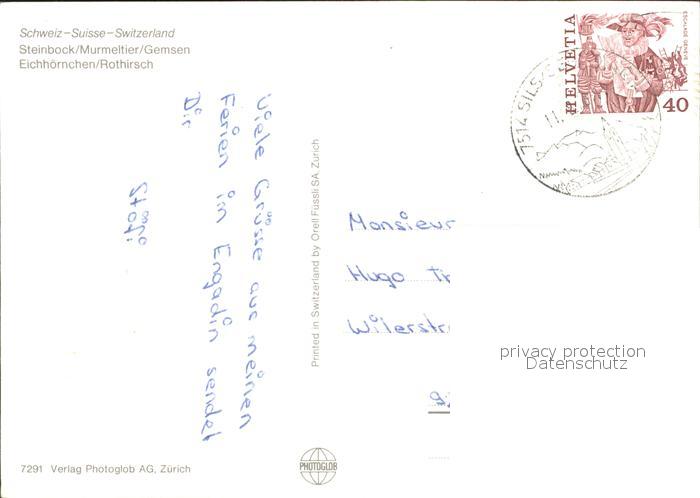 Schweiz–Suisse–Switzerland
Steinbock/Murmeltier/Gemsen
Eichhörnchen/Rothirsch
Viele Grüsse aus meinen
Ferien im Engadin sendet
Dir
Printed in Switzerland by Orell Füssli SA, Zürich
HELVETIA
ESCALADE GENÈVE
40
7514 SILS/S
11.
Monsieur
Hugo Tr
Wilerstr
privacy protection
Datenschutz
PHOTOGLOB
7291 Verlag Photoglob AG, Zürich